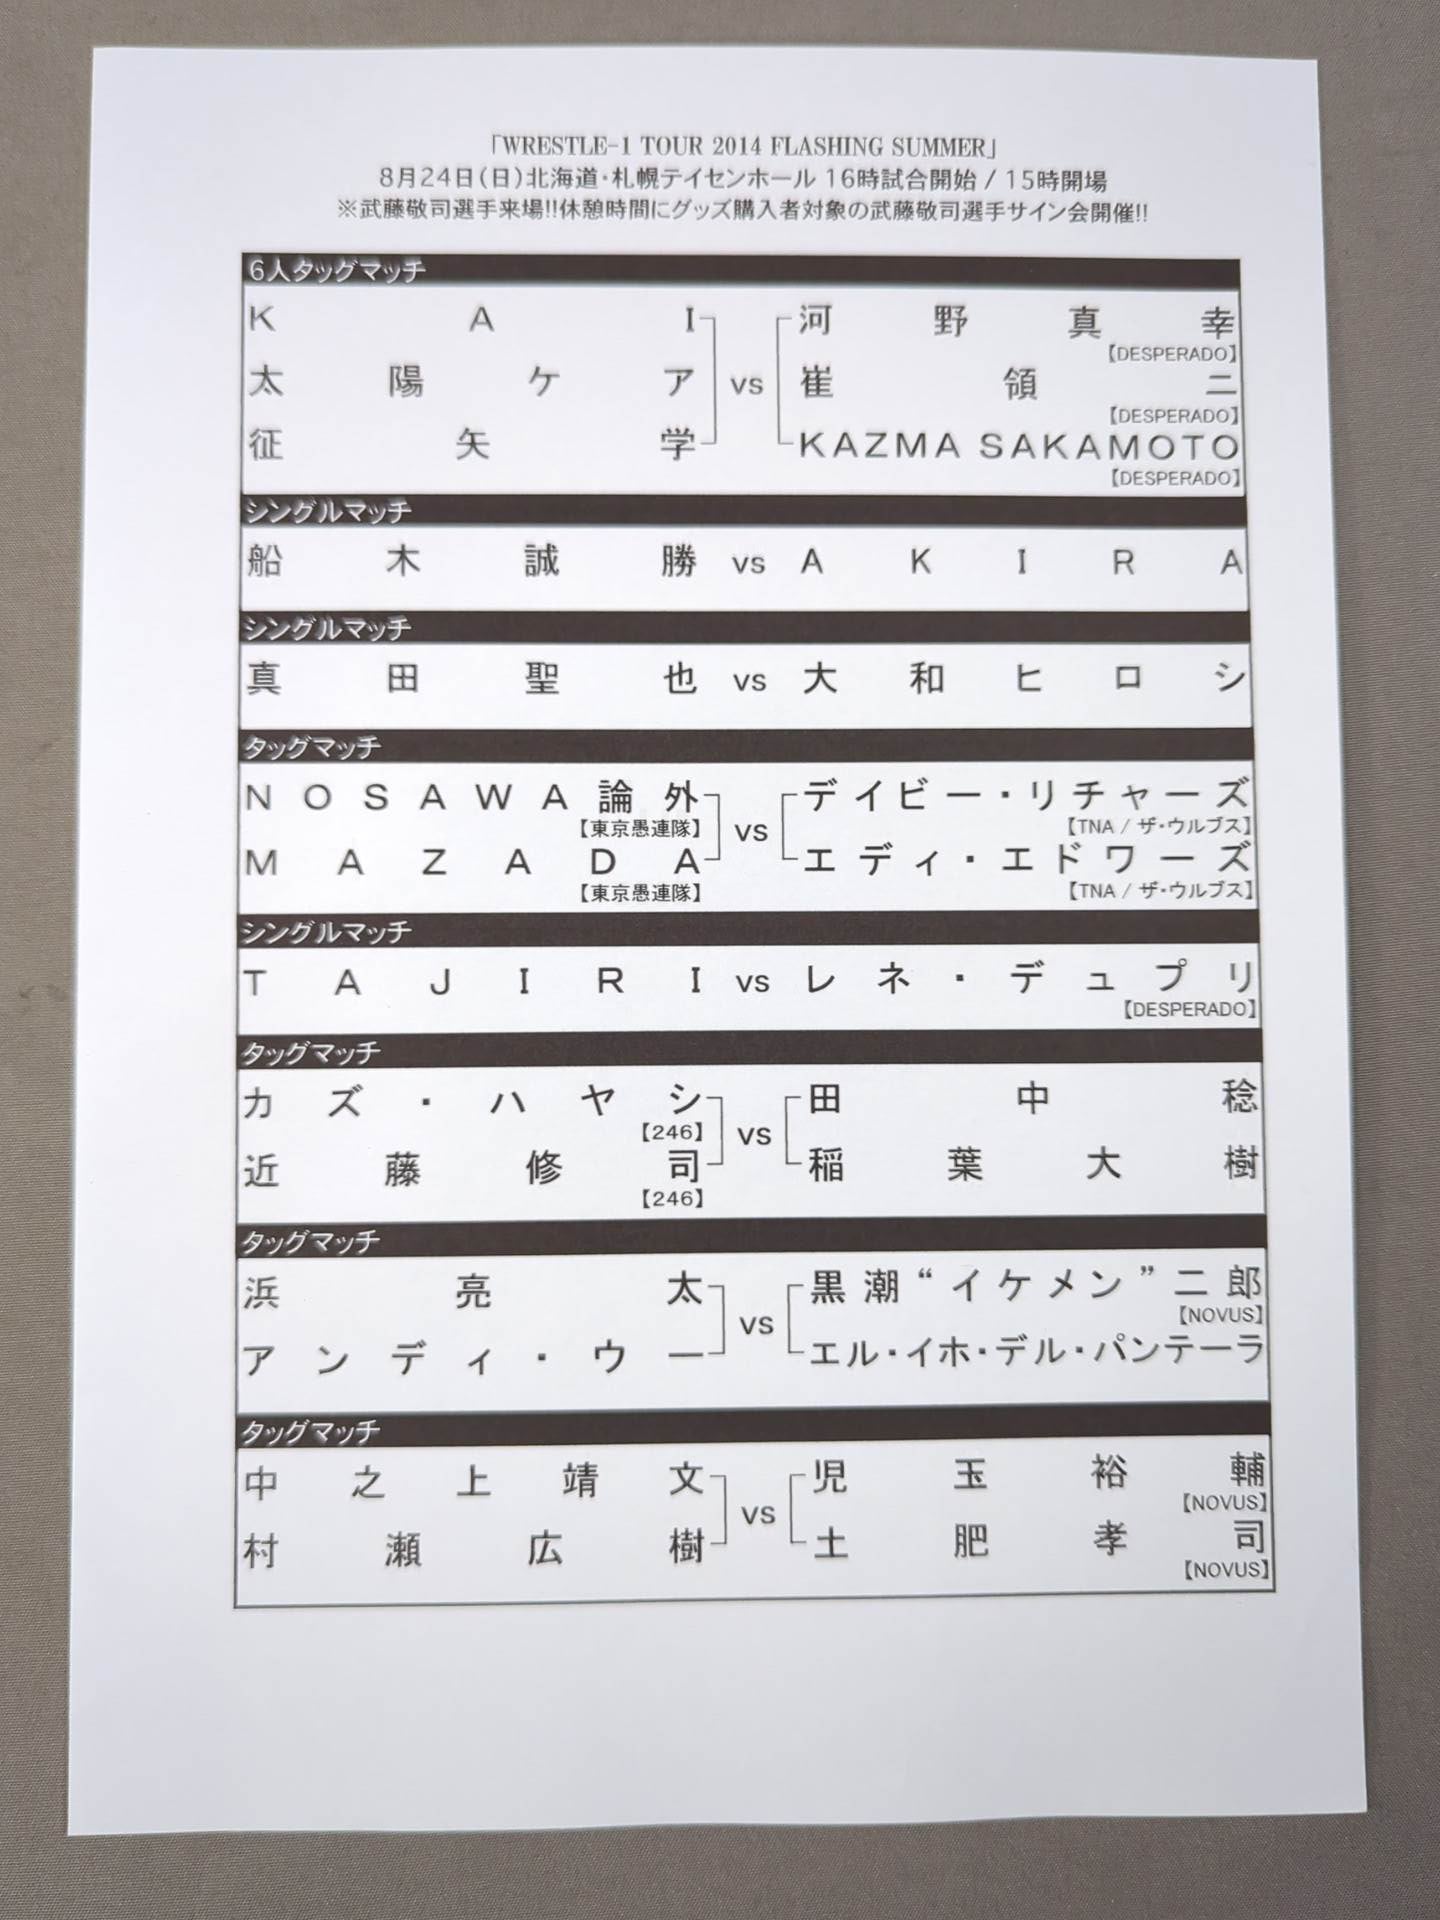 「WRESTLE-1 TOUR 2014 FLASHING SUMMER」
8月24日(日)北海道・札幌テイセンホール 16時試合開始 / 15時開場
※武藤敬司選手来場!!休憩時間にグッズ購入者対象の武藤敬司選手サイン会開催!!
6人タッグマッチ
KAI vs 河野真幸
【DESPERADO】
太陽ケア 崔領二
【DESPERADO】
征矢学 KAZMA SAKAMOTO
【DESPERADO】
シングルマッチ
船木誠勝 vs AKIRA
シングルマッチ
真田聖也 vs 大和ヒロシ
タッグマッチ
NOSAWA論外 vs デイビー・リチャーズ
【東京愚連隊】 【TNA / ザ・ウルブス】
MAZADA エディ・エドワーズ
【東京愚連隊】 【TNA / ザ・ウルブス】
シングルマッチ
TAJIRI vs レネ・デュプリ
【DESPERADO】
タッグマッチ
カズ・ハヤシ vs 田中稔
【246】
近藤修司 稲葉大樹
【246】
タッグマッチ
浜亮太 vs 黒潮“イケメン”二郎
【NOVUS】
アンディ・ウー エル・イホ・デル・パンテーラ
タッグマッチ
中之上靖文 vs 児玉裕輔
【NOVUS】
村瀬広樹 土肥孝司
【NOVUS】